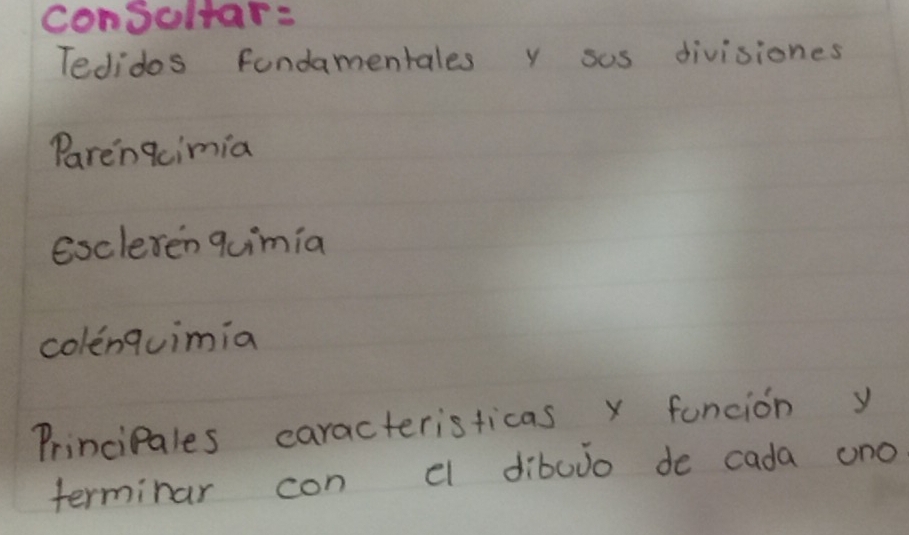 ConSultar:
Tedidos fundamentales y sus divisiones
Parénquimia
Esclerénquimia
colénquimia
Principales caracteristicas y función y
terminar con el dibujo de cada uno